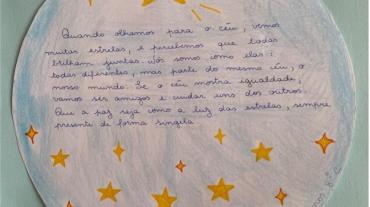 Quando olhamos para o céu, vemos
muitas estrelas, e percebemos que todas
brilham juntas. Nós somos como elas:
todas diferentes, mas parte do mesmo céu, o
nosso mundo. Se o céu mostra igualdade,
vamos ser amigos e cuidar uns dos outros.
Que a paz seja como a luz das estrelas, sempre
presente de forma singela.